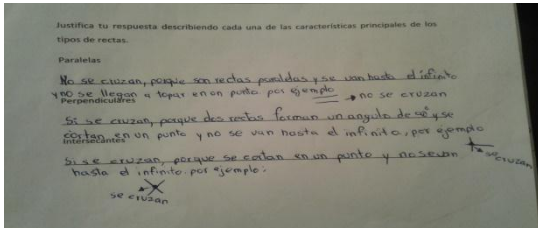 Justifica tu respuesta describiendo cada una de las características principales de los
tipos de rectas.
Paralelas
No se cruzan, porque son rectas paralelas y se van hasta el infinito
y no se llegan a topar en un punto por ejemplo → no se cruzan
Perpendiculares
Si se cruzan, porque dos rectas forman un angulo de 90° y se
cortan en un punto y no se van hasta el infinito, por ejemplo
se cruzan
Intersecantes
Si se cruzan, porque se cortan en un punto y no se van
hasta el infinito. por ejemplo:
se cruzan